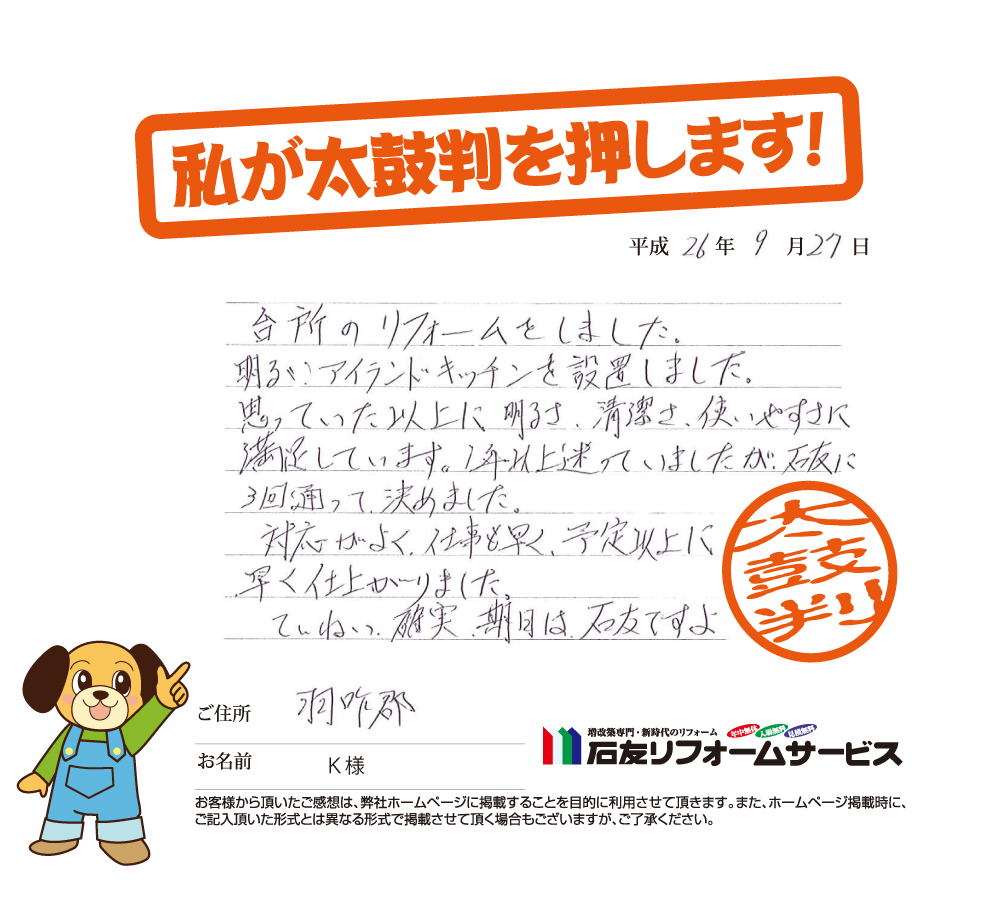 私が太鼓判を押します!
平成 26 年 9 月 27 日
台所のリフォームをしました。
明るい、アイランドキッチンを設置しました。
思っていた以上に明るさ、清潔さ、使いやすさに
満足しています。1年以上迷っていましたが、石友に
3回通って、決めました。
対応がよく、仕事も早く、予定以上に
早く仕上がりました。
ていねい、確実、期日は、石友ですよ
太鼓判
ご住所 羽咋郡
お名前 K様
増改築専門・新時代のリフォーム 年中無休 入場無料 見積無料
石友リフォームサービス
お客様から頂いたご感想は、弊社ホームページに掲載することを目的に利用させて頂きます。また、ホームページ掲載時に、
ご記入頂いた形式とは異なる形式で掲載させて頂く場合もございますが、ご了承ください。